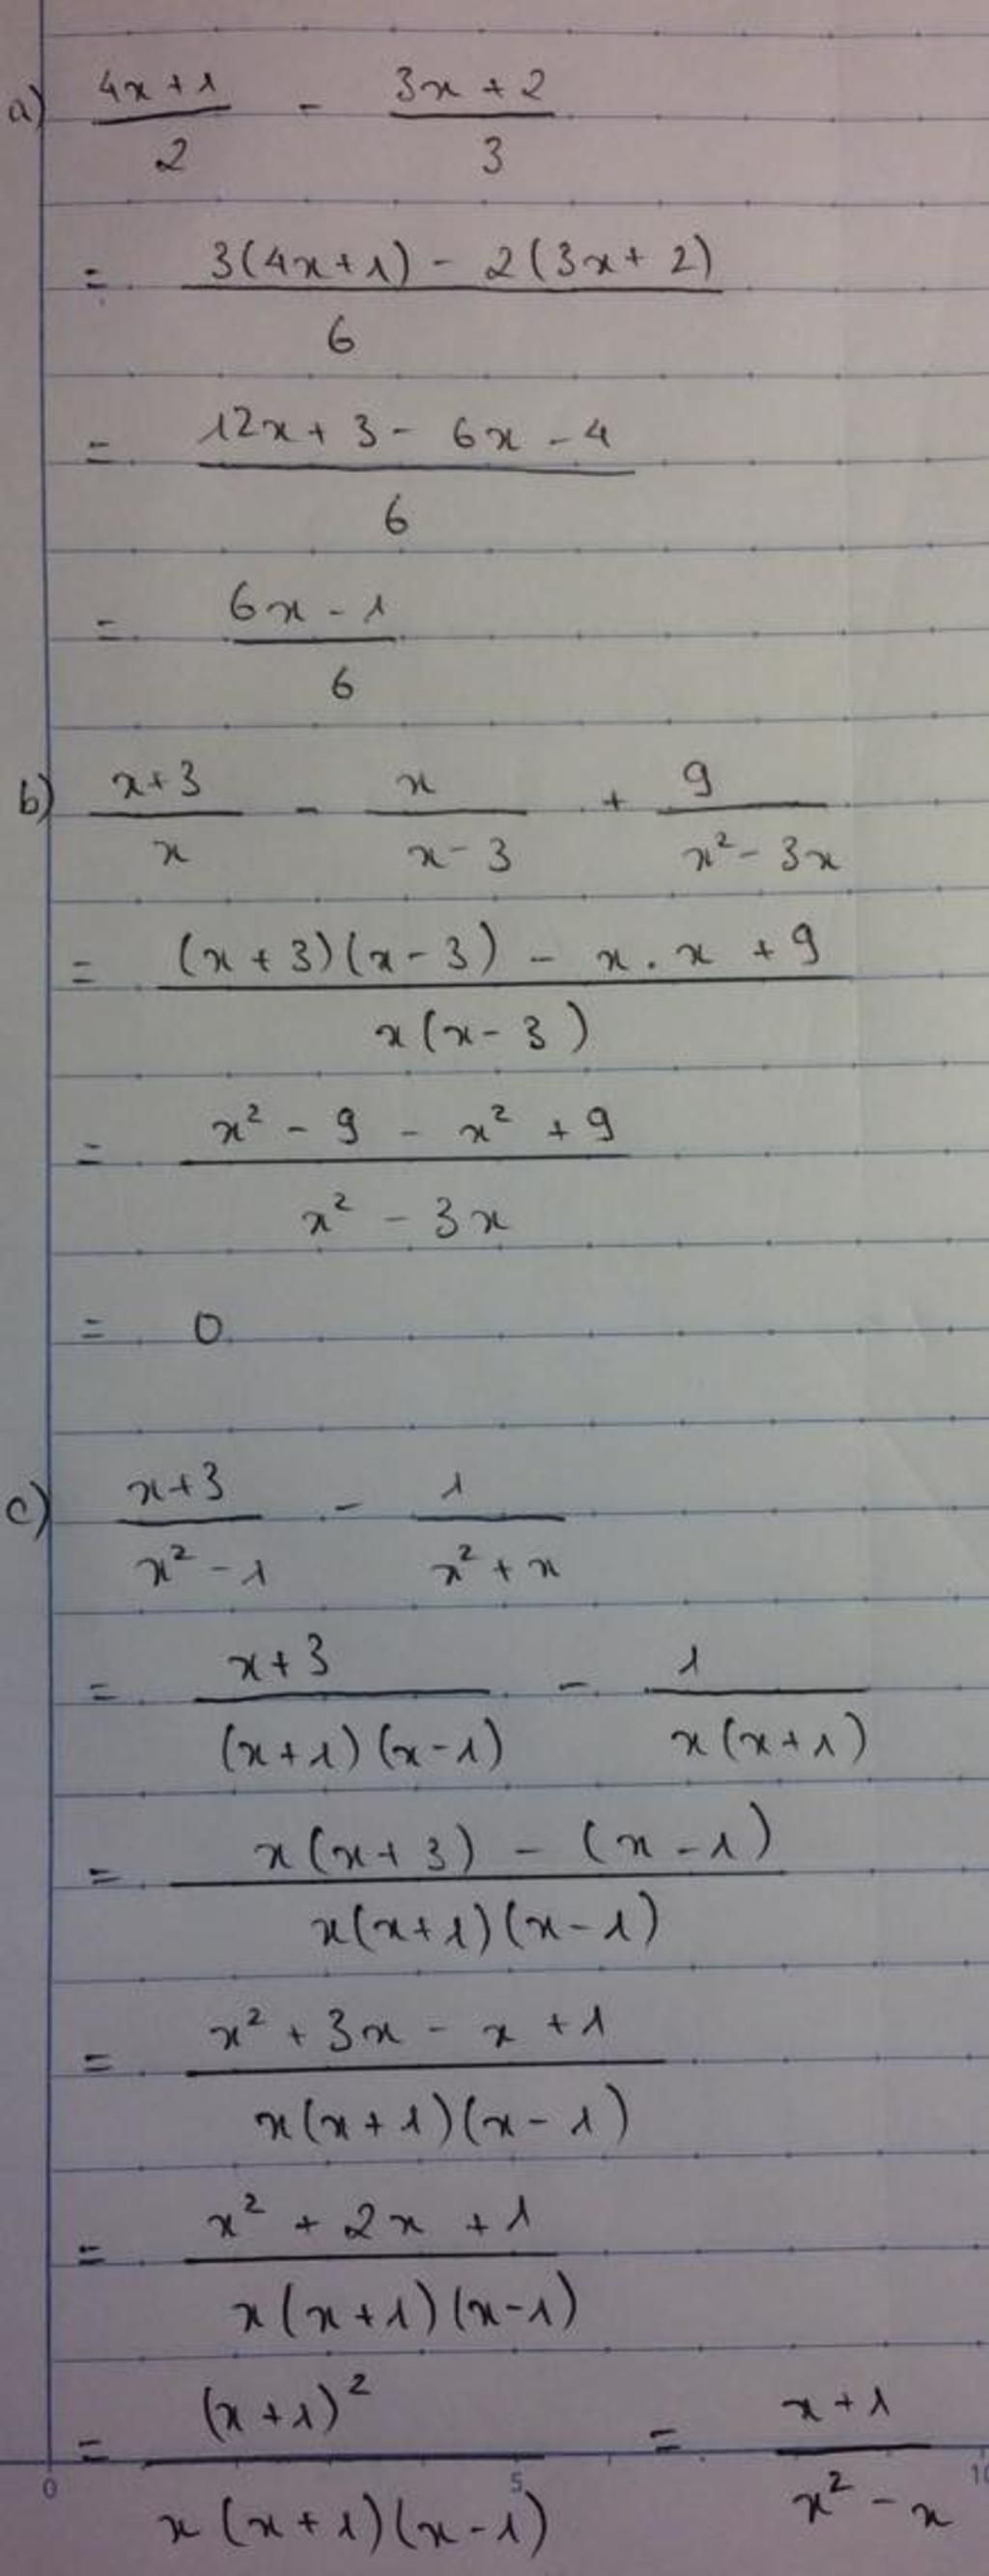 a) (4x+1)/2 - (3x+2)/3
= (3(4x+1) - 2(3x+2))/6
= (12x+3 - 6x - 4)/6
= (6x - 1)/6
b) (x+3)/x - x/(x-3) + 9/(x² - 3x)
= ((x+3)(x-3) - x . x + 9)/(x(x-3))
= (x² - 9 - x² + 9)/(x² - 3x)
= 0
c) (x+3)/(x² - 1) - 1/(x² + x)
= (x+3)/((x+1)(x-1)) - 1/(x(x+1))
= (x(x+3) - (x-1))/(x(x+1)(x-1))
= (x² + 3x - x + 1)/(x(x+1)(x-1))
= (x² + 2x + 1)/(x(x+1)(x-1))
= (x+1)²/(x(x+1)(x-1)) = (x+1)/(x² - x)
0 5 10